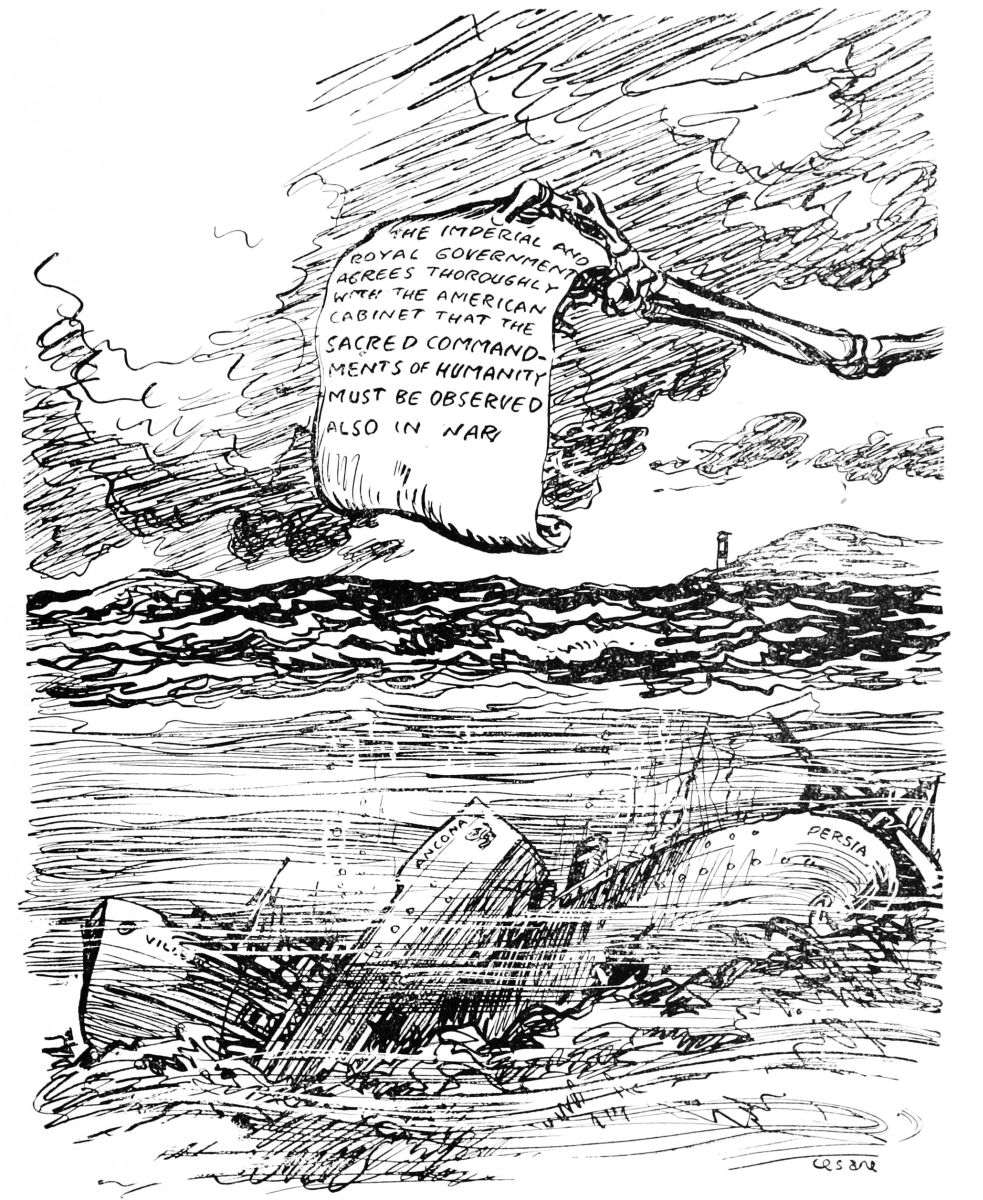 THE IMPERIAL AND
ROYAL GOVERNMENT
AGREES THOROUGHLY
WITH THE AMERICAN
CABINET THAT THE
SACRED COMMAND-
MENTS OF HUMANITY
MUST BE OBSERVED
ALSO IN WAR,
ANCONA
PERSIA
VILL
CESARE